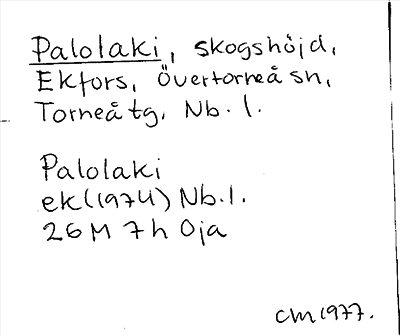 Palolaki, skogshöjd,
Ekfors, Övertorneå sn,
Torneå tg, Nb. l.
Palolaki
ek (1974) Nb.l.
26 M 7h Oja
CM 1977.